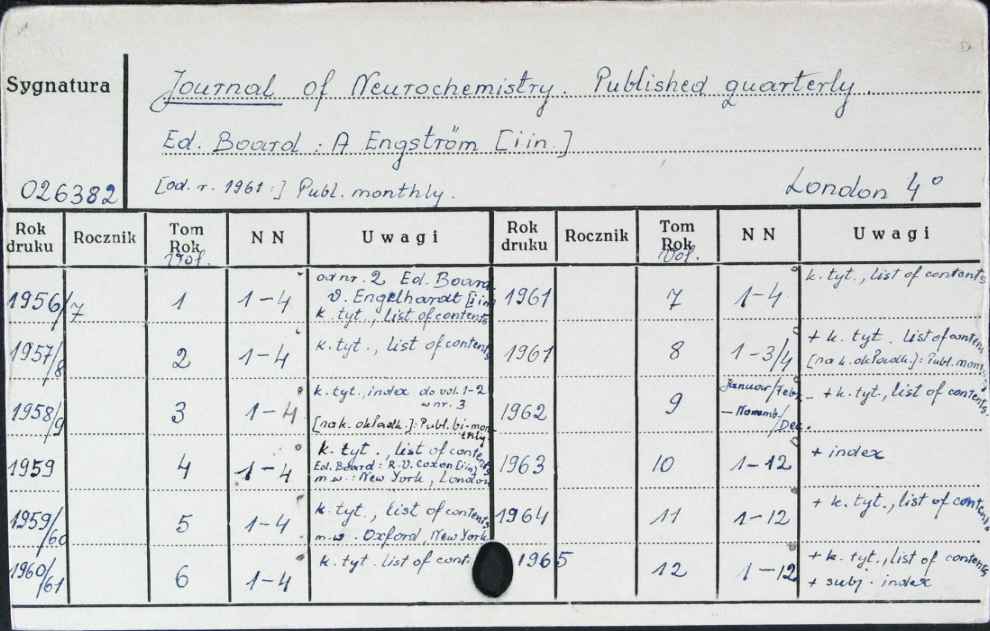 Sygnatura
Journal of Neurochemistry. Published quarterly.
Ed. Board : A Engström [i in.]
026382 [od. r. 1961 :] Publ. monthly. London 4°
Rok druku Rocznik Tom Rok Vol. NN Uwagi Rok druku Rocznik Tom Rok Vol. NN Uwagi
1956/7 1 1-4 od nr. 2 Ed. Board
V. Engelhardt [i in
k. tyt., list of contents
1957/8 2 1-4 k. tyt., list of contents
1958/9 3 1-4 k. tyt., index do vol. 1-2
w nr. 3
[na k. okładk.]: Publ. bi-monthly.
1959 4 1-4 k. tyt., list of contents
Ed. Board: R.V. Coxon [i in.]
m.w.: New York, London
1959/60 5 1-4 k. tyt., list of contents
m.w. Oxford, New York
1960/61 6 1-4 k. tyt. list of cont.
1961 7 1-4 k. tyt., list of contents
1961 8 1-3/4 + k. tyt. list of contents
[na k. okładk.: Publ. mont
1962 9 Januar/Febr.
- Novemb./Dec. - + k. tyt., list of contents.
1963 10 1-12 + index
1964 11 1-12 + k. tyt., list of contents.
1965 12 1-12 + k. tyt., list of contents
+ subj. index